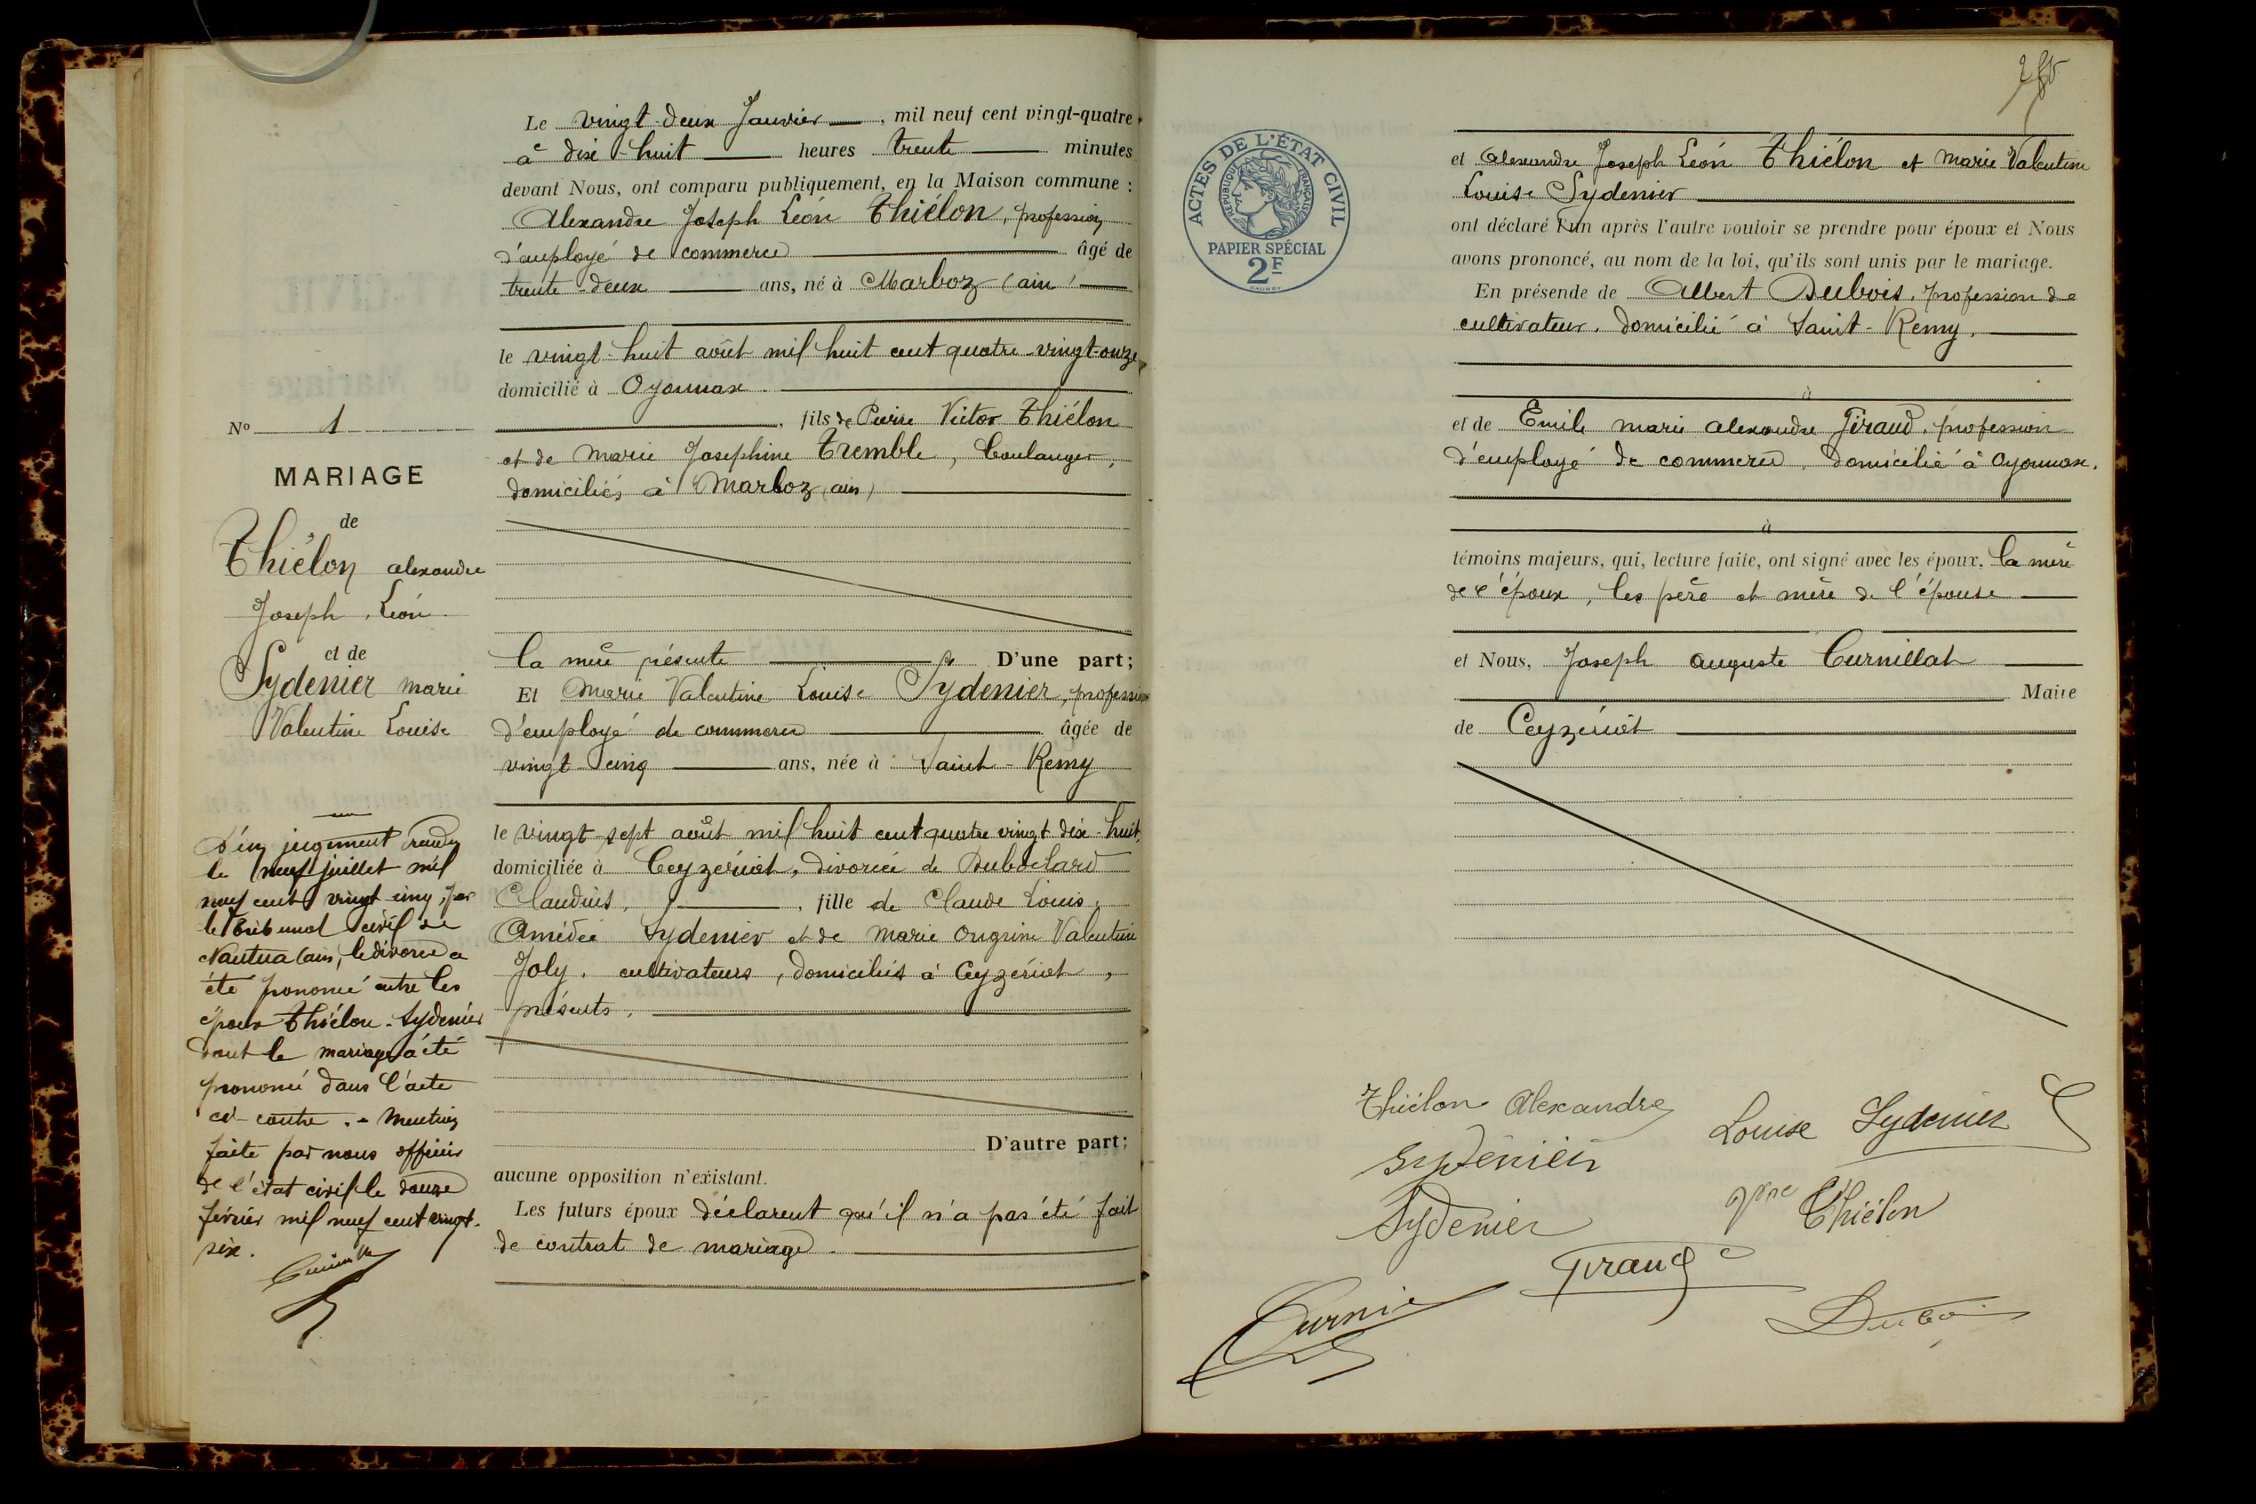 Le vingt-deux Janvier, mil neuf cent vingt-quatre
à dix-huit heures trente minutes
devant Nous, ont comparu publiquement, en la Maison commune :
Alexandre Joseph Léon Thiélon, profession
d'employé de commerce âgé de
trente-deux ans, né à Marboz (ain)
le vingt-huit août mil huit cent quatre-vingt-onze
domicilié à Oyonnax.
, fils de Pierre Victor Thiélon
et de Marie Josephine Tremble, boulanger,
domiciliés à Marboz (ain)
la mère présente D'une part;
Et Marie Valentine Louise Sydenier, profession
d'employé de commerce âgée de
vingt-cinq ans, née à Saint-Remy
le vingt-sept août mil huit cent quatre vingt dix-huit,
domiciliée à Ceyzériat, divorcée de Duboclard
Claudius, , fille de Claude Louis,
Amédée Sydenier et de Marie Valentine
Joly, cultivateurs, domiciliés à Ceyzériat,
présents,
D'autre part;
aucune opposition n'existant.
Les futurs époux déclarent qu'il n'a pas été fait
de contrat de mariage.
No 1
MARIAGE
de
Thiélon alexandre
Joseph, Léon
et de
Sydenier Marie
Valentine Louise
D'un jugement rendu
le neuf juillet mil
neuf cent vingt cinq, par
le Tribunal civil de
Nantua (ain), le divorce a
été prononcé entre les
époux Thiélon-Sydenier
dont le mariage a été
prononcé dans l'acte
ci-contre. - Mention
faite par nous officier
de l'état civil le douze
février mil neuf cent vingt-
six.
ACTES DE L'ÉTAT CIVIL
RÉPUBLIQUE FRANÇAISE
PAPIER SPÉCIAL
2F
et Alexandre Joseph Léon Thiélon et Marie Valentine
Louise Sydenier
ont déclaré l'un après l'autre vouloir se prendre pour époux et Nous
avons prononcé, au nom de la loi, qu'ils sont unis par le mariage.
En présende de Albert Dubois, profession de
cultivateur, domicilié à Saint-Remy,
à
et de Emile Marie Alexandre Giraud, profession
d'employé de commerce, domicilié à Oyonnax.
à
témoins majeurs, qui, lecture faite, ont signé avec les époux, la mère
de l'époux, les père et mère de l'épouse
et Nous, Joseph Auguste Curnillat
Maire
de Ceyzériat
Thiélon Alexandre
Louise Sydenier
Sydenier
Thiélon
Sydenier
Giraud
Dubois